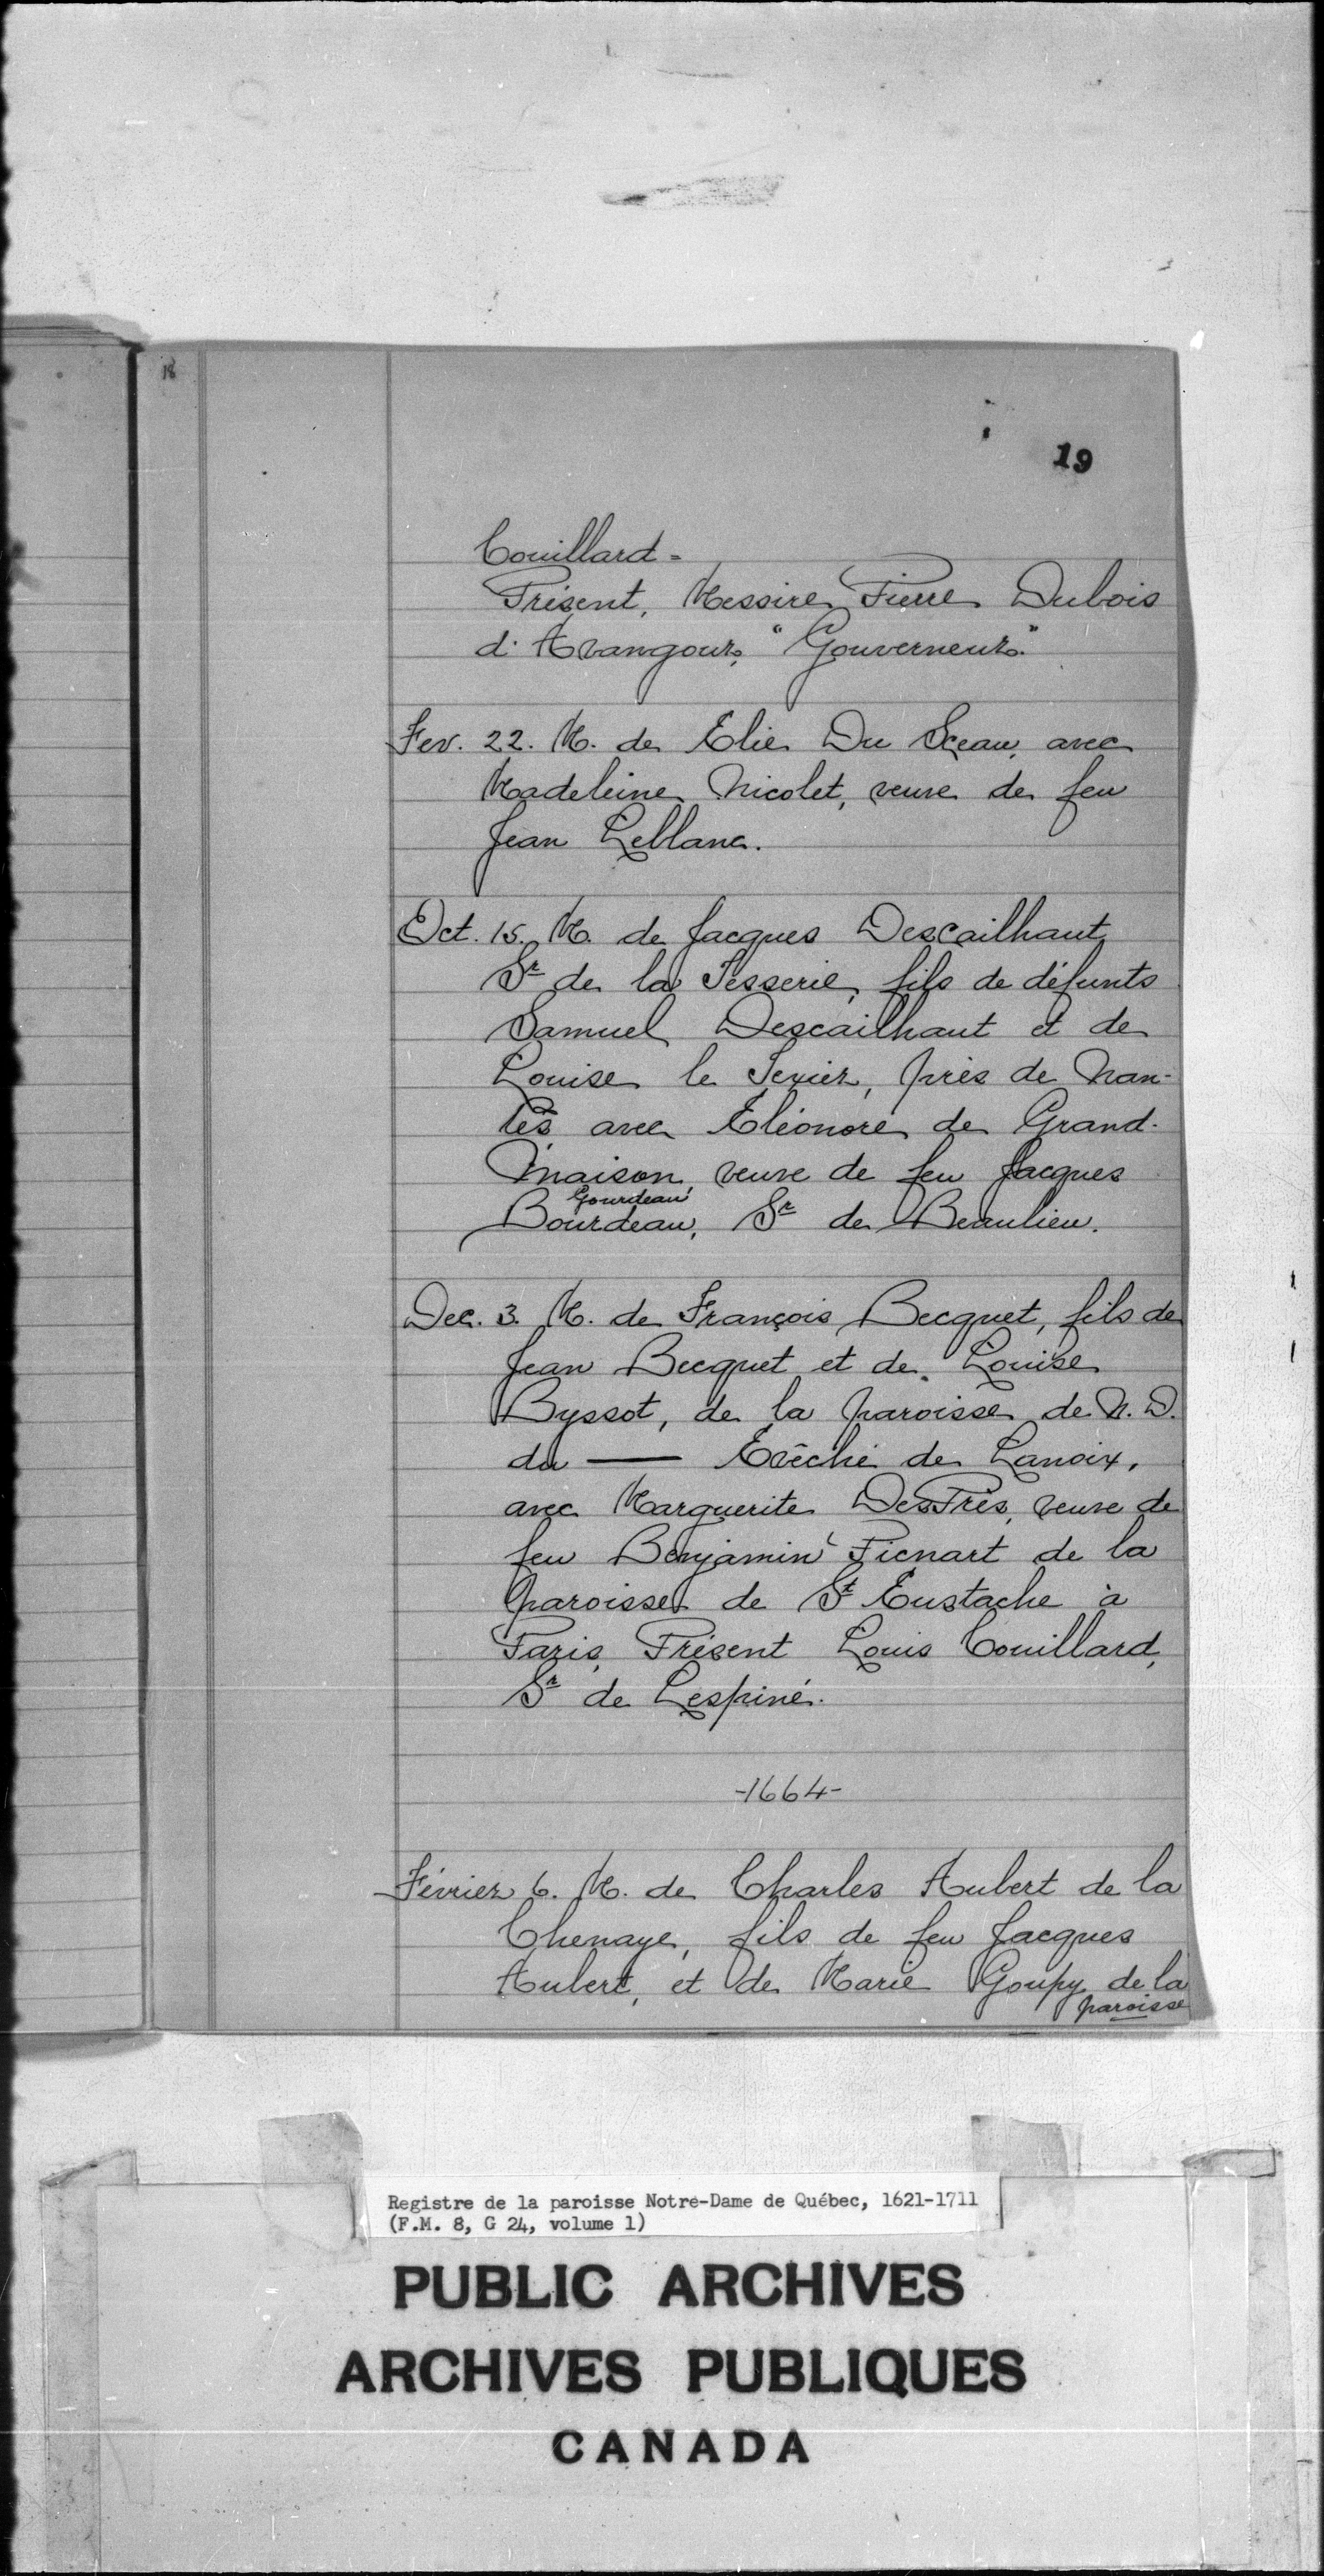 18
19
Couillard =
Présent, Messire Pierre Dubois
d'Avangour, "Gouverneur."
Fev. 22. M. de Elie Du Sceau, avec
Madeleine Nicolet, veuve de feu
Jean Leblanc.
Oct. 15. M. de Jacques Descailhaut,
Sr de la Tesserie, fils de défunts
Samuel Descailhaut et de
Louise le Texier, près de Nan-
tes, avec Eléonore de Grand-
maison, veuve de feu Jacques
Gourdeau
Bourdeau, Sr de Beaulieu.
Dec. 3. M. de François Becquet, fils de
Jean Becquet et de Louise
Byssot, de la paroisse de N. D.
du — Evêché de Lanoix,
avec Marguerite DesPrès, veuve de
feu Benjamin Picnart de la
paroisse de St Eustache à
Paris, Présent Louis Couillard,
Sr de Lespiné.
-1664-
Février 6. M. de Charles Aubert de la
Chenaye, fils de feu Jacques
Aubert, et de Marie Goupy de la
paroisse
Registre de la paroisse Notre-Dame de Québec, 1621-1711
(F.M. 8, G 24, volume 1)
PUBLIC ARCHIVES
ARCHIVES PUBLIQUES
CANADA